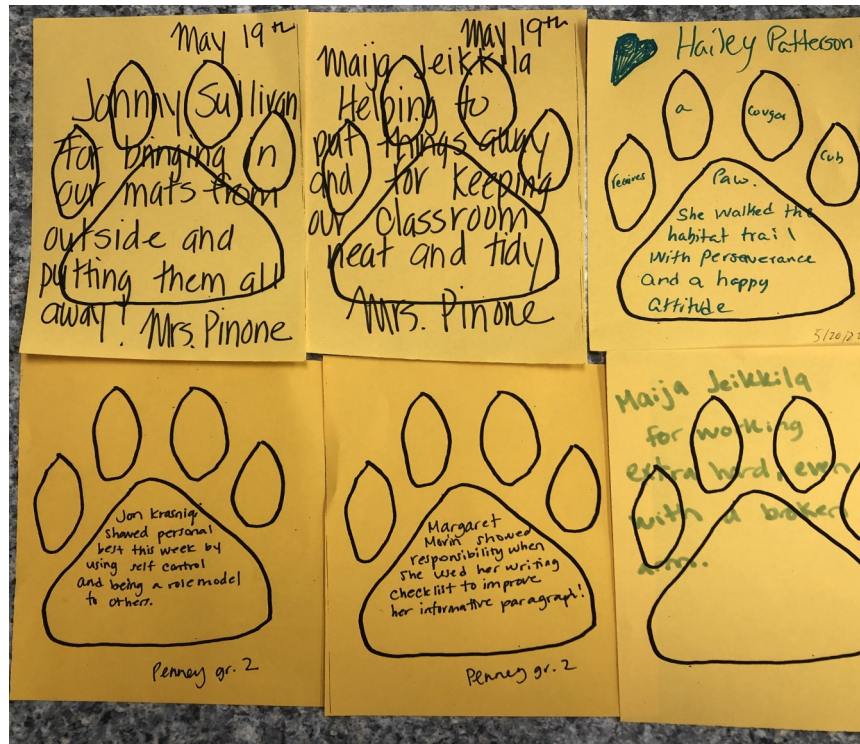 May 19th
Johnny Sullivan
for bringing in
our mats from
outside and
putting them all
away! Mrs. Pinone
May 19th
Maija Jeikkila
Helping to
put things away
and for keeping
our classroom
neat and tidy
Mrs. Pinone
Hailey Patterson
receives a Cougar Cub
Paw.
She walked the
habitat trail
with Perseverance
and a happy
attitude
Jon Krasniqi
showed personal
best this week by
using self control
and being a role model
to others.
Penney gr. 2
Margaret
Morin showed
responsibility when
she used her writing
checklist to improve
her informative paragraph!
Penney gr. 2
Maija Jeikkila
for working
extra hard, even
with a broken
arm.